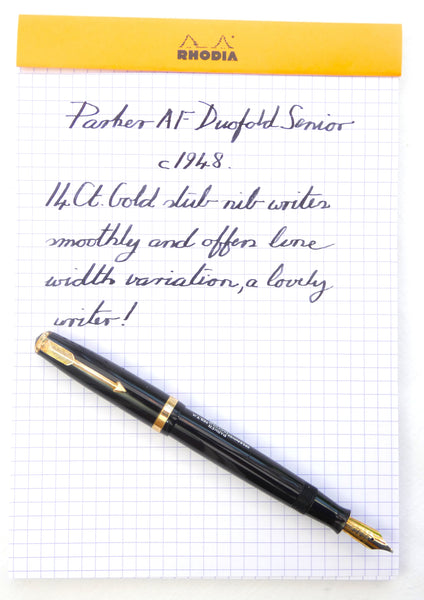 RHODIA
Parker AF Duofold Senior
c1948.
14Ct. Gold stub nib writes
smoothly and offers line
width variation, a lovely
writer!